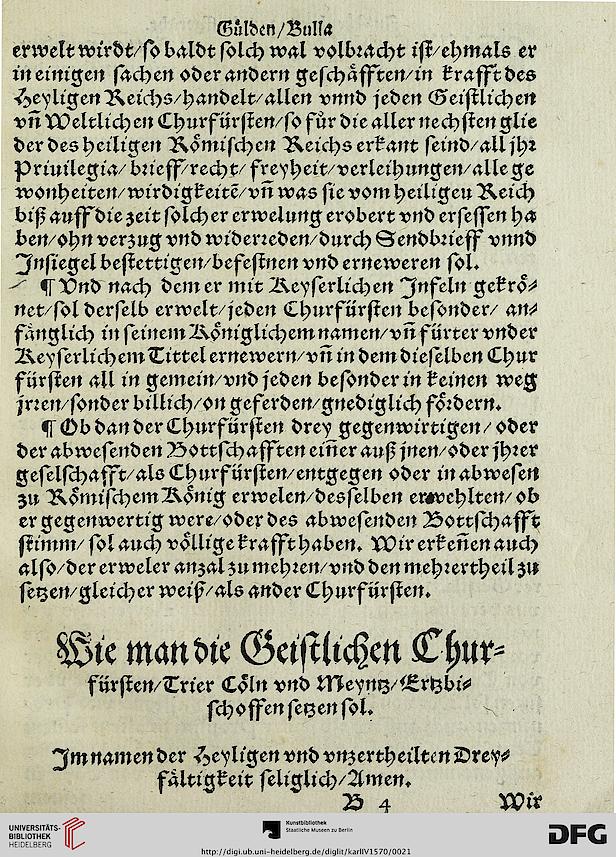 Gülden/Bulla
erwelt wirdt/so baldt solch wal volbracht ist/ehmals er
in einigen sachen oder andern geschäfften/in krafft des
Heyligen Reichs/handelt/allen vnnd jeden Geistlichen
vñ Weltlichen Churfürsten/so für die aller nechsten glie
der des heiligen Römischen Reichs erkant seind/all jhr
Priuilegia/brieff/recht/freyheit/verleihungen/alle ge
wonheiten/wirdigkeitē/vñ was sie vom heiligeu Reich
biß auff die zeit solcher erwelung erobert vnd ersessen ha
ben/ohn verzug vnd widerreden/durch Sendbrieff vnnd
Insiegel bestettigen/befestnen vnd erneweren sol.
¶ Vnd nach dem er mit Keyserlichen Infeln gekrö⸗
net/sol derselb erwelt/jeden Churfürsten besonder/an⸗
fänglich in seinem Königlichem namen/vñ fürter vnder
Keyserlichem Tittel ernewern/vñ in dem dieselben Chur
fürsten all in gemein/vnd jeden besonder in keinen weg
jrren/sonder billich/on geferden/gnediglich fördern.
¶ Ob dan der Churfürsten drey gegenwirtigen/oder
der abwesenden Bottschafften eiñer auß jnen/oder jhrer
geselschafft/als Churfürsten/entgegen oder in abwesen
zu Römischem König erwelen/desselben erwehlten/ob
er gegenwertig were/oder des abwesenden Bottschafft
stimm/sol auch völlige krafft haben. Wir erkeñen auch
also/der erweler anzal zu mehren/vnd den mehrertheil zu
setzen/gleicher weiß/als ander Churfürsten.
Wie man die Geistlichen Chur⸗
fürsten/Trier Cöln vnd Meyntz/Ertzbi⸗
schoffen setzen sol.
Im namen der Heyligen vnd vnzertheilten Drey⸗
fältigkeit seliglich/Amen.
B 4 Wir
UNIVERSITÄTS-
BIBLIOTHEK
HEIDELBERG
Kunstbibliothek
Staatliche Museen zu Berlin
DFG
http://digi.ub.uni-heidelberg.de/diglit/karlIV1570/0021